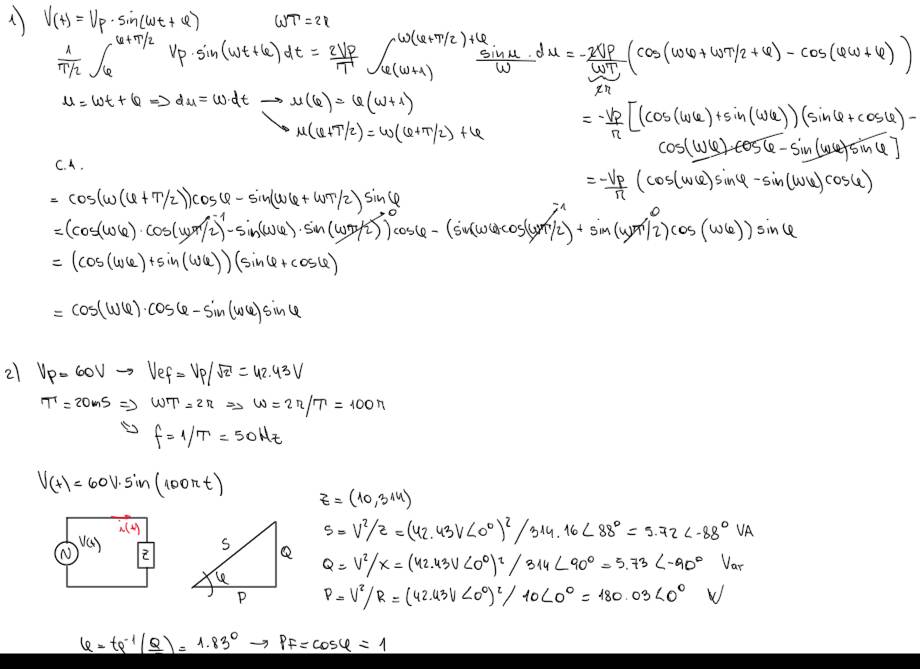 1) V(t) = Vp · sin(wt + φ)   WT = 2π
1/(T/2) ∫_φ^(φ+T/2) Vp · sin(wt + φ) dt = 2Vp/T ∫_φ(w+1)^(w(φ+T/2)+φ) sin u/w · du = -2Vp/WT (cos(wφ + wT/2 + φ) - cos(φw + φ))
2π
u = wt + φ => du = w · dt → u(φ) = φ(w+1)
u(φ+T/2) = w(φ+T/2) + φ
= -Vp/π [(cos(wφ) + sin(wφ))(sinφ + cosφ) -
cos(wφ) · cosφ - sin(wφ) sinφ]
= -Vp/π (cos(wφ) sinφ - sin(wφ) cosφ)
C.A.
= cos(w(φ + T/2)) cosφ - sin(wφ + wT/2) sinφ
= (cos(wφ) · cos(wT/2)^-1 - sin(wφ) · sin(wT/2)^0) cosφ - (sin(wφ) cos(wT/2)^-1 + sin(wT/2)^0 cos(wφ)) sinφ
= (cos(wφ) + sin(wφ))(sinφ + cosφ)
= cos(wφ) · cosφ - sin(wφ) sinφ
2) Vp = 60V → Vef = Vp/√2 = 42.43V
T = 20ms => WT = 2π => w = 2π/T = 100π
=> f = 1/T = 50Hz
V(t) = 60V · sin(100πt)
i(t)
V(t)
Z
S
Q
φ
P
Z = (10,314)
S = V²/Z = (42.43V∠0°)² / 314.16∠88° = 5.72∠-88° VA
Q = V²/X = (42.43V∠0°)² / 314∠90° = 5.73∠-90° Var
P = V²/R = (42.43V∠0°)² / 10∠0° = 180.03∠0° W
φ = tg⁻¹(Q/ ) = 1.83° → PF = cosφ = 1